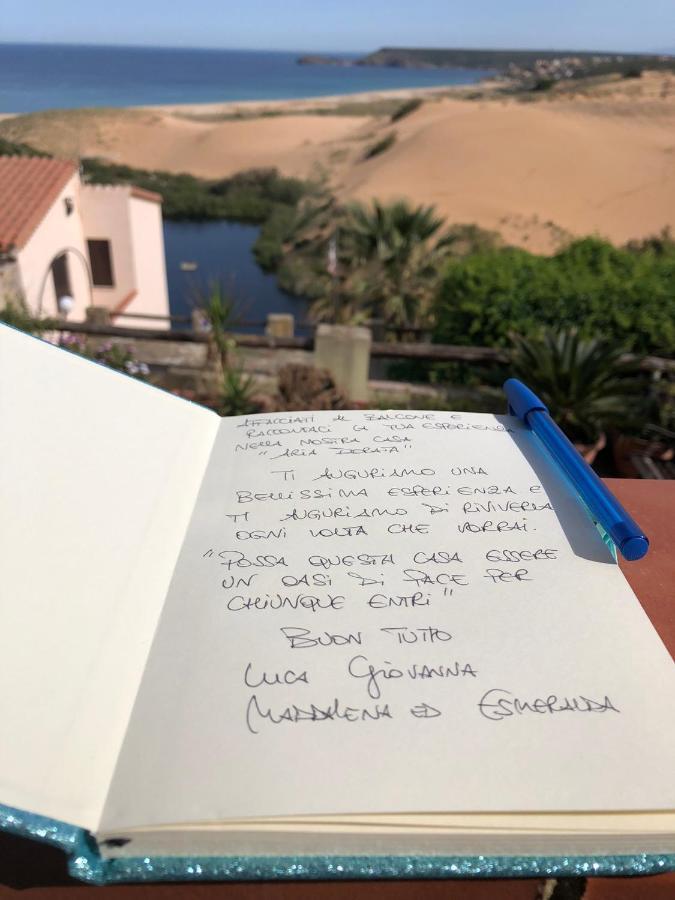 AFFACCIATI AL BALCONE E
RACCONTACI LA TUA ESPERIENZA
NELLA NOSTRA CASA
"ARIA DORATA"
TI AUGURIAMO UNA
BELLISSIMA ESPERIENZA E
TI AUGURIAMO DI RIVIVERLA
OGNI VOLTA CHE VORRAI.
"POSSA QUESTA CASA ESSERE
UN OASI DI PACE PER
CHIUNQUE ENTRI"
BUON TUTTO
LUCA GIOVANNA
MADDALENA ED ESMERALDA